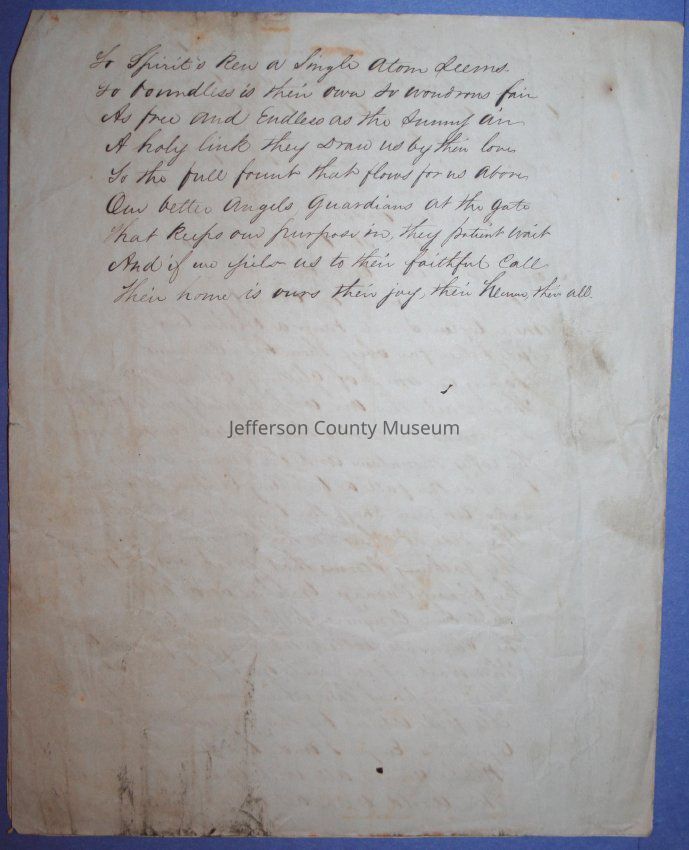 To Spirit's Ken a Single Atom Seems
So boundless is their own so wondrous fair
As free and Endless as the Sunny air
A holy link they Draw us by their love
To the full fount that flows for us above
Our better Angels Guardians at the gate
That keeps our purpose on, they patient wait
And if we yield us to their faithful Call
Their home is ours their joy, their heaven, their all.
Jefferson County Museum